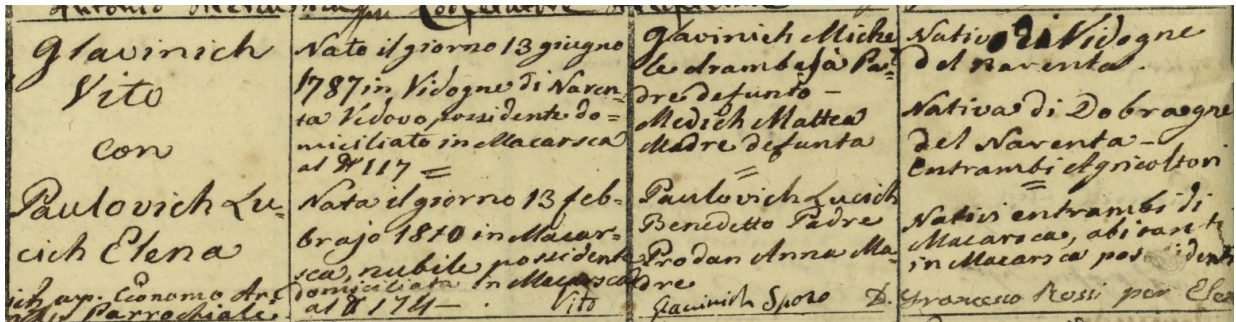 Glavinich
Vito
con
Paulovich Lu-
cich Elena
Nato il giorno 13 giugno
1787 in Vidogne di Naren-
ta Vedovo, possidente do=
miciliato in Macarsca
al N 117 =
Nata il giorno 13 feb-
brajo 1810 in Macar-
sca, nubile possidente
domiciliata in Macarsca
al N 174 -
Vito
Glavinich Miche
le Arambassà Pa-
dre defunto -
Medich Mattea
Madre defunta
=
Paulovich Lucich
Benedetto Padre
Prodan Anna Ma-
dre
Glavinich Sposo
Nativo di Vidogne
del Narenta.
Nativa di Dobragne
del Narenta -
entrambi Agricoltori
=
Nativi entrambi di
Macarsca, abitanti
in Macarsca possidenti
Francesco Rossi per Ele